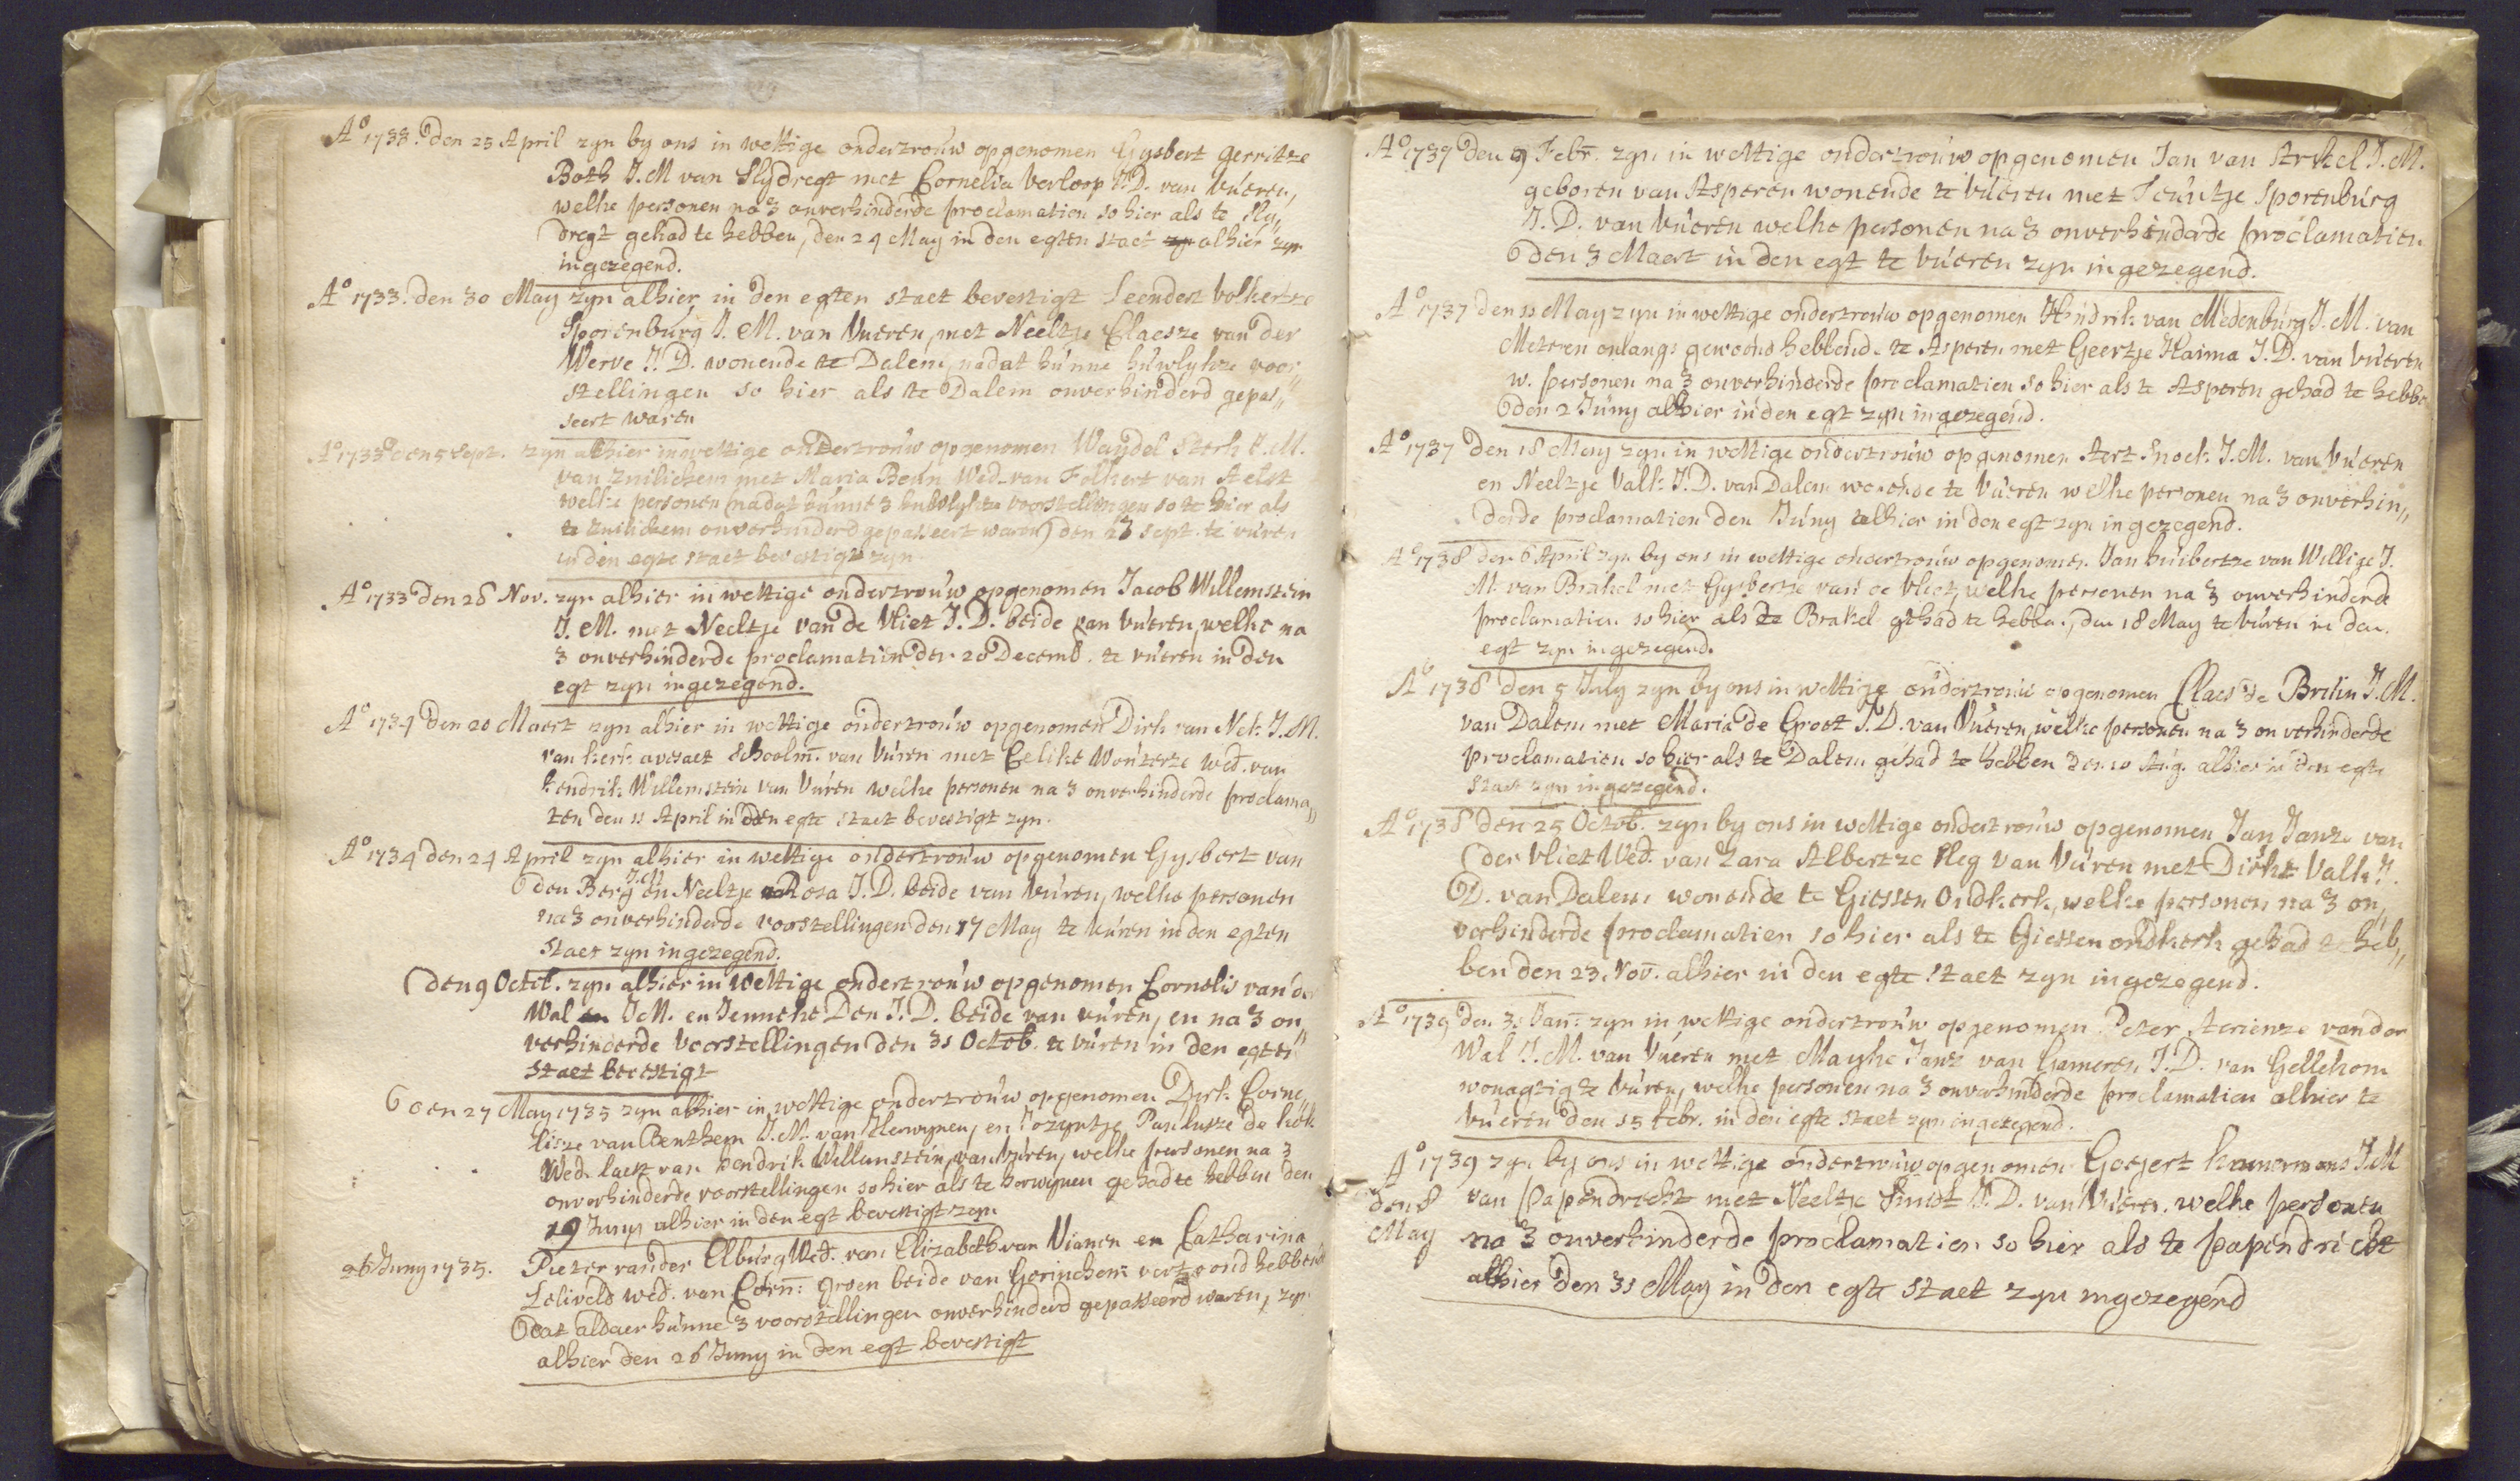 A° 1733. den 25 April zyn by ons in wettige ondertrouw opgenomen Gysbert Gerritze
Both J.M van Slydregt met Cornelia Verloop J.D. van Vueren,
welke personen na 3 onverhinderde proclamatien so hier als te Sly„
dregt gehad te hebben, den 24 May in den egten staet alhier zyn
ingezegend.
A° 1733. den 30 May zyn alhier in den egten staet bevestigt Leendert Volkertze
Sporenburg J.M. van Vueren, met Neeltje Claesze van der
Werve J.D. wonende te Dalem, nadat hunne huwlykze voor
stellingen so hier als te Dalem onverhinderd gepas„
seert waren
A° 1733 den 5 Sept. zyn alhier in wettige ondertrouw opgenomen Wandel Sterk J.M.
van Zuilichem met Maria Beun Wed. van Folkert van Aelst
welke personen (nadat hunne 3 huwlykze voorstellingen so te hier als
te Zuilichem onverhinderd gepasseert waren) den 23 Sept. te vuren
in den egte staet bevestigt zyn
A° 1733 den 28 Nov. zyn alhier in wettige ondertrouw opgenomen Jacob Willemstein
J.M. met Neeltje van de Vliet J.D. beide van Vueren, welke na
3 onverhinderde proclamatien den 20 Decemb. te vueren in den
egt zyn ingezegend.
A° 1734 den 20 Maert zyn alhier in wettige ondertrouw opgenomen Dirk van Nek J.M.
van kerk avesaet schoolm. van Vuren met Celike Wouterze wed. van
hendrik Willemstein van Vuren welke personen na 3 onverhinderde proclama„
ten den 11 April in den egte staet bevestigt zyn.
A° 1734 den 24 April zyn alhier in wettige ondertrouw opgenomen Gysbert van
den Berg J.M en Neeltje Rosa J.D. beide van Vuren, welke personen
na 3 onverhinderde voorstellingen den 17 May te Vuren in den egten
staet zyn ingezegend.
den 9 Octob. zyn alhier in wettige ondertrouw opgenomen Cornelis van de
Wal J.M. en Jenneke Den J.D. beide van vuren, en na 3 on„
verhinderde Voorstellingen den 31 Octob. te vuren in den egten
staet bevestigt
den 27 May 1735 zyn alhier in wettige ondertrouw opgenomen Dirk Corne„
lisze van Benthem J.M. van Herwynen, en Jozyntje Paulusze de kok
Wed. laetst van hendrik Willemstein van vuren, welke personen na 3
onverhinderde voorstellingen so hier als te herwynen gehad te hebben den
19 Juny alhier in den egt bevestigt zyn
26 Juny 1735. Pieter van der Elburg Wed. van Elizabeth van Vianen en Catharina
Leliveld wed. van Corn: Groen beide van Gorinchem vertoond hebbend
dat aldaer hunne 3 voorstellingen onverhinderd gepasseerd waren, zyn
alhier den 26 Juny in den egt bevestigt
A° 1737 den 9 Febr. zyn in wettige ondertrouw opgenomen Jan van Arkel J.M.
geboren van Asperen wonende te Vueren met Teuntje Sporenburg
J.D. van Vueren welke personen na 3 onverhinderde proclamatien
den 3 Maert in den egt te Vueren zyn ingezegend.
A° 1737 den 11 May zyn in wettige ondertrouw opgenomen Hindrik van Medenburg J.M. van
Meteren onlangs gewoond hebbende te Asperen met Geertje Haima J.D. van Vueren
w. personen na 3 onverhinderde proclamatien so hier als te Asperen gehad te hebbe
den 2 Juny alhier in den egt zyn ingezegend.
A° 1737 den 18 May zyn in wettige ondertrouw opgenomen Aert Snoek J.M. van Vueren
en Neeltje Valk J.D. van Dalem wonende te Vueren welke personen na 3 onverhin„
derde proclamatien den Juny alhier in den egt zyn ingezegend.
A° 1738 den 6 April zyn by ons in wettige ondertrouw opgenomen Jan huibertze van Willige J.
M. van Brakel met Gysbertje van de Vliet, welke personen na 3 onverhinderde
proclamatien so hier als te Brakel gehad te hebben, den 18 May te Vuren in den
egt zyn ingezegend.
A° 1738 den 5 July zyn by ons in wettige ondertrouw opgenomen Claes de Bruin J.M.
van Dalem met Maria de Groot J.D. van Vueren, welke personen na 3 onverhinderde
proclamatien so hier als te Dalem gehad te hebben den 10 Aug. alhier in den egte
staet zyn ingezegend.
A° 1738 den 25 Octob. zyn by ons in wettige ondertrouw opgenomen Jan Janze van
der Vliet Wed. van Zara Albertze Sleg van Vuren met Dirkje Valk J.
D. van Dalem wonende te Giessen Oudkerk, welke personen na 3 on„
verhinderde proclamatien so hier als te Giessen oudkerk gehad te heb„
ben den 23 Nov. alhier in den egte staet zyn ingezegend.
A° 1739 den 31 Jan: zyn in wettige ondertrouw opgenomen Peter Aerienze van der
Wal J.M. van Vueren met Mayke Janz van Gameren J.D. van Gellekom
wonagtig te Vuren, welke personen na 3 onverhinderde proclamatien alhier te
Vueren den 15 Febr. in den egte staet zyn ingezegend.
A° 1739 zyn by ons in wettige ondertrouw opgenomen Goyert kamermans J.M
den 8 van Papendrecht met Neeltje Smidt J.D. van Vueren. welke personen
May na 3 onverhinderde proclamatien so hier als te papendricht
alhier den 31 May in den egte staet zyn ingezegend